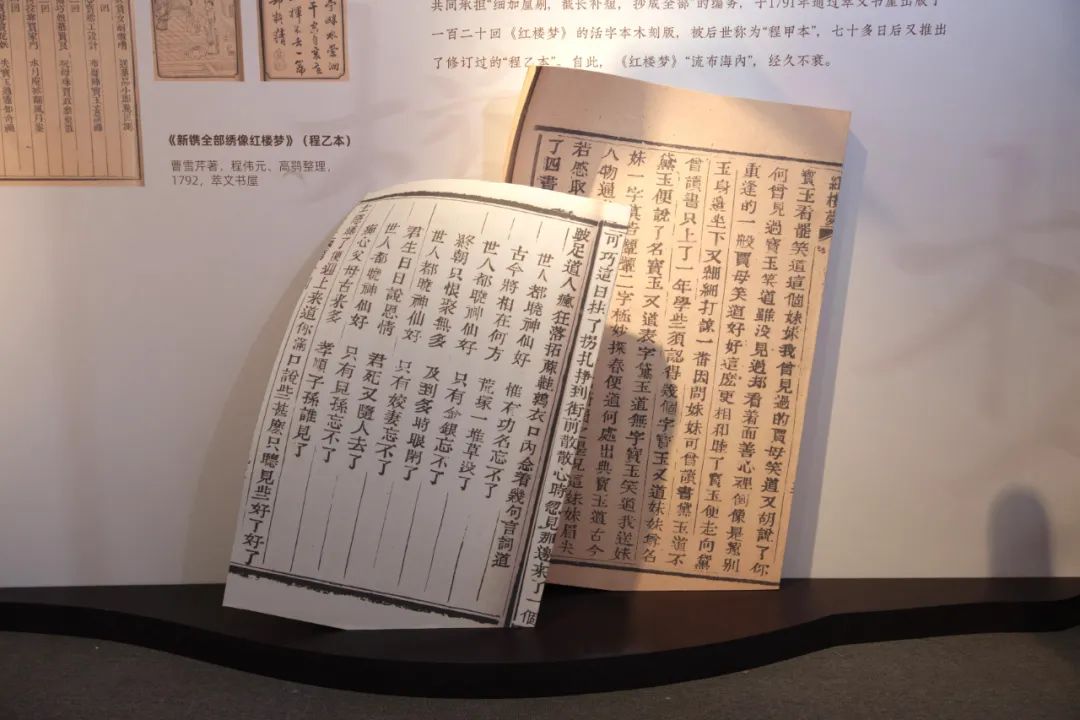 共同承担“细加厘剔，截长补短，抄成全部”的编务，于1791年通过萃文书屋出版了
一百二十回《红楼梦》的活字本木刻版，被后世称为“程甲本”，七十多日后又推出
了修订过的“程乙本”。自此，《红楼梦》“流布海内”，经久不衰。
《新镌全部绣像红楼梦》（程乙本）
曹雪芹著，程伟元、高鹗整理，
1792，萃文书屋
紅樓夢
寶玉看罷笑道這個妹妹我曾見過的賈母笑道又胡說了你
何曾見過寶玉笑道雖沒見過却看着面善心裡倒像是別
重逢的一般賈母笑道好好這麽更相和睦了寶玉便走向黛
玉身邊坐下又細細打諒一番因問妹妹可曾讀書黛玉道不
曾讀書只上了一年學些須認得幾個字寶玉又道妹妹尊名
黛玉便說了名寶玉又道表字黛玉道無字寶玉笑道我送妹
妹一字莫若顰顰二字極妙探春便道何處出典寶玉道古今
人物通見這妹妹眉尖
若感取
了四書
可巧這日拄了拐扎掙到街前散散心時忽見那邊來了一個
跛足道人瘋狂落拓麻鞋鶉衣口內念着幾句言詞道
世人都曉神仙好 惟有功名忘不了
古今將相在何方 荒塚一堆草沒了
世人都曉神仙好 只有金銀忘不了
終朝只恨聚無多 及到多時眼閉了
世人都曉神仙好 只有姣妻忘不了
君生日日說恩情 君死又隨人去了
世人都曉神仙好 只有兒孫忘不了
癡心父母古來多 孝順子孫誰見了
士隱聽了便迎上來道你滿口說些甚麽只聽見些好了好了